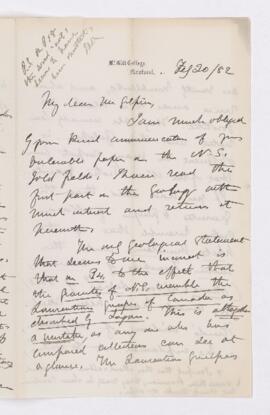 McGill College,
Montreal. Feb 20/82
My dear Mr Gilpin,
I am much obliged
by your kind communication of your
valuable paper on the N.S.
Gold fields. I have read the
first part on the Geology with
much interest and return it
herewith.
The only Geological statement
that seems to me incorrect is
that on P4. to the effect that
the granites of N.S. resemble the
Laurentian gneisses of Canada as
described by Logan. This is altogether
a mistake as any one who has
compared collections can see at
a glance. The Laurentian gneisses